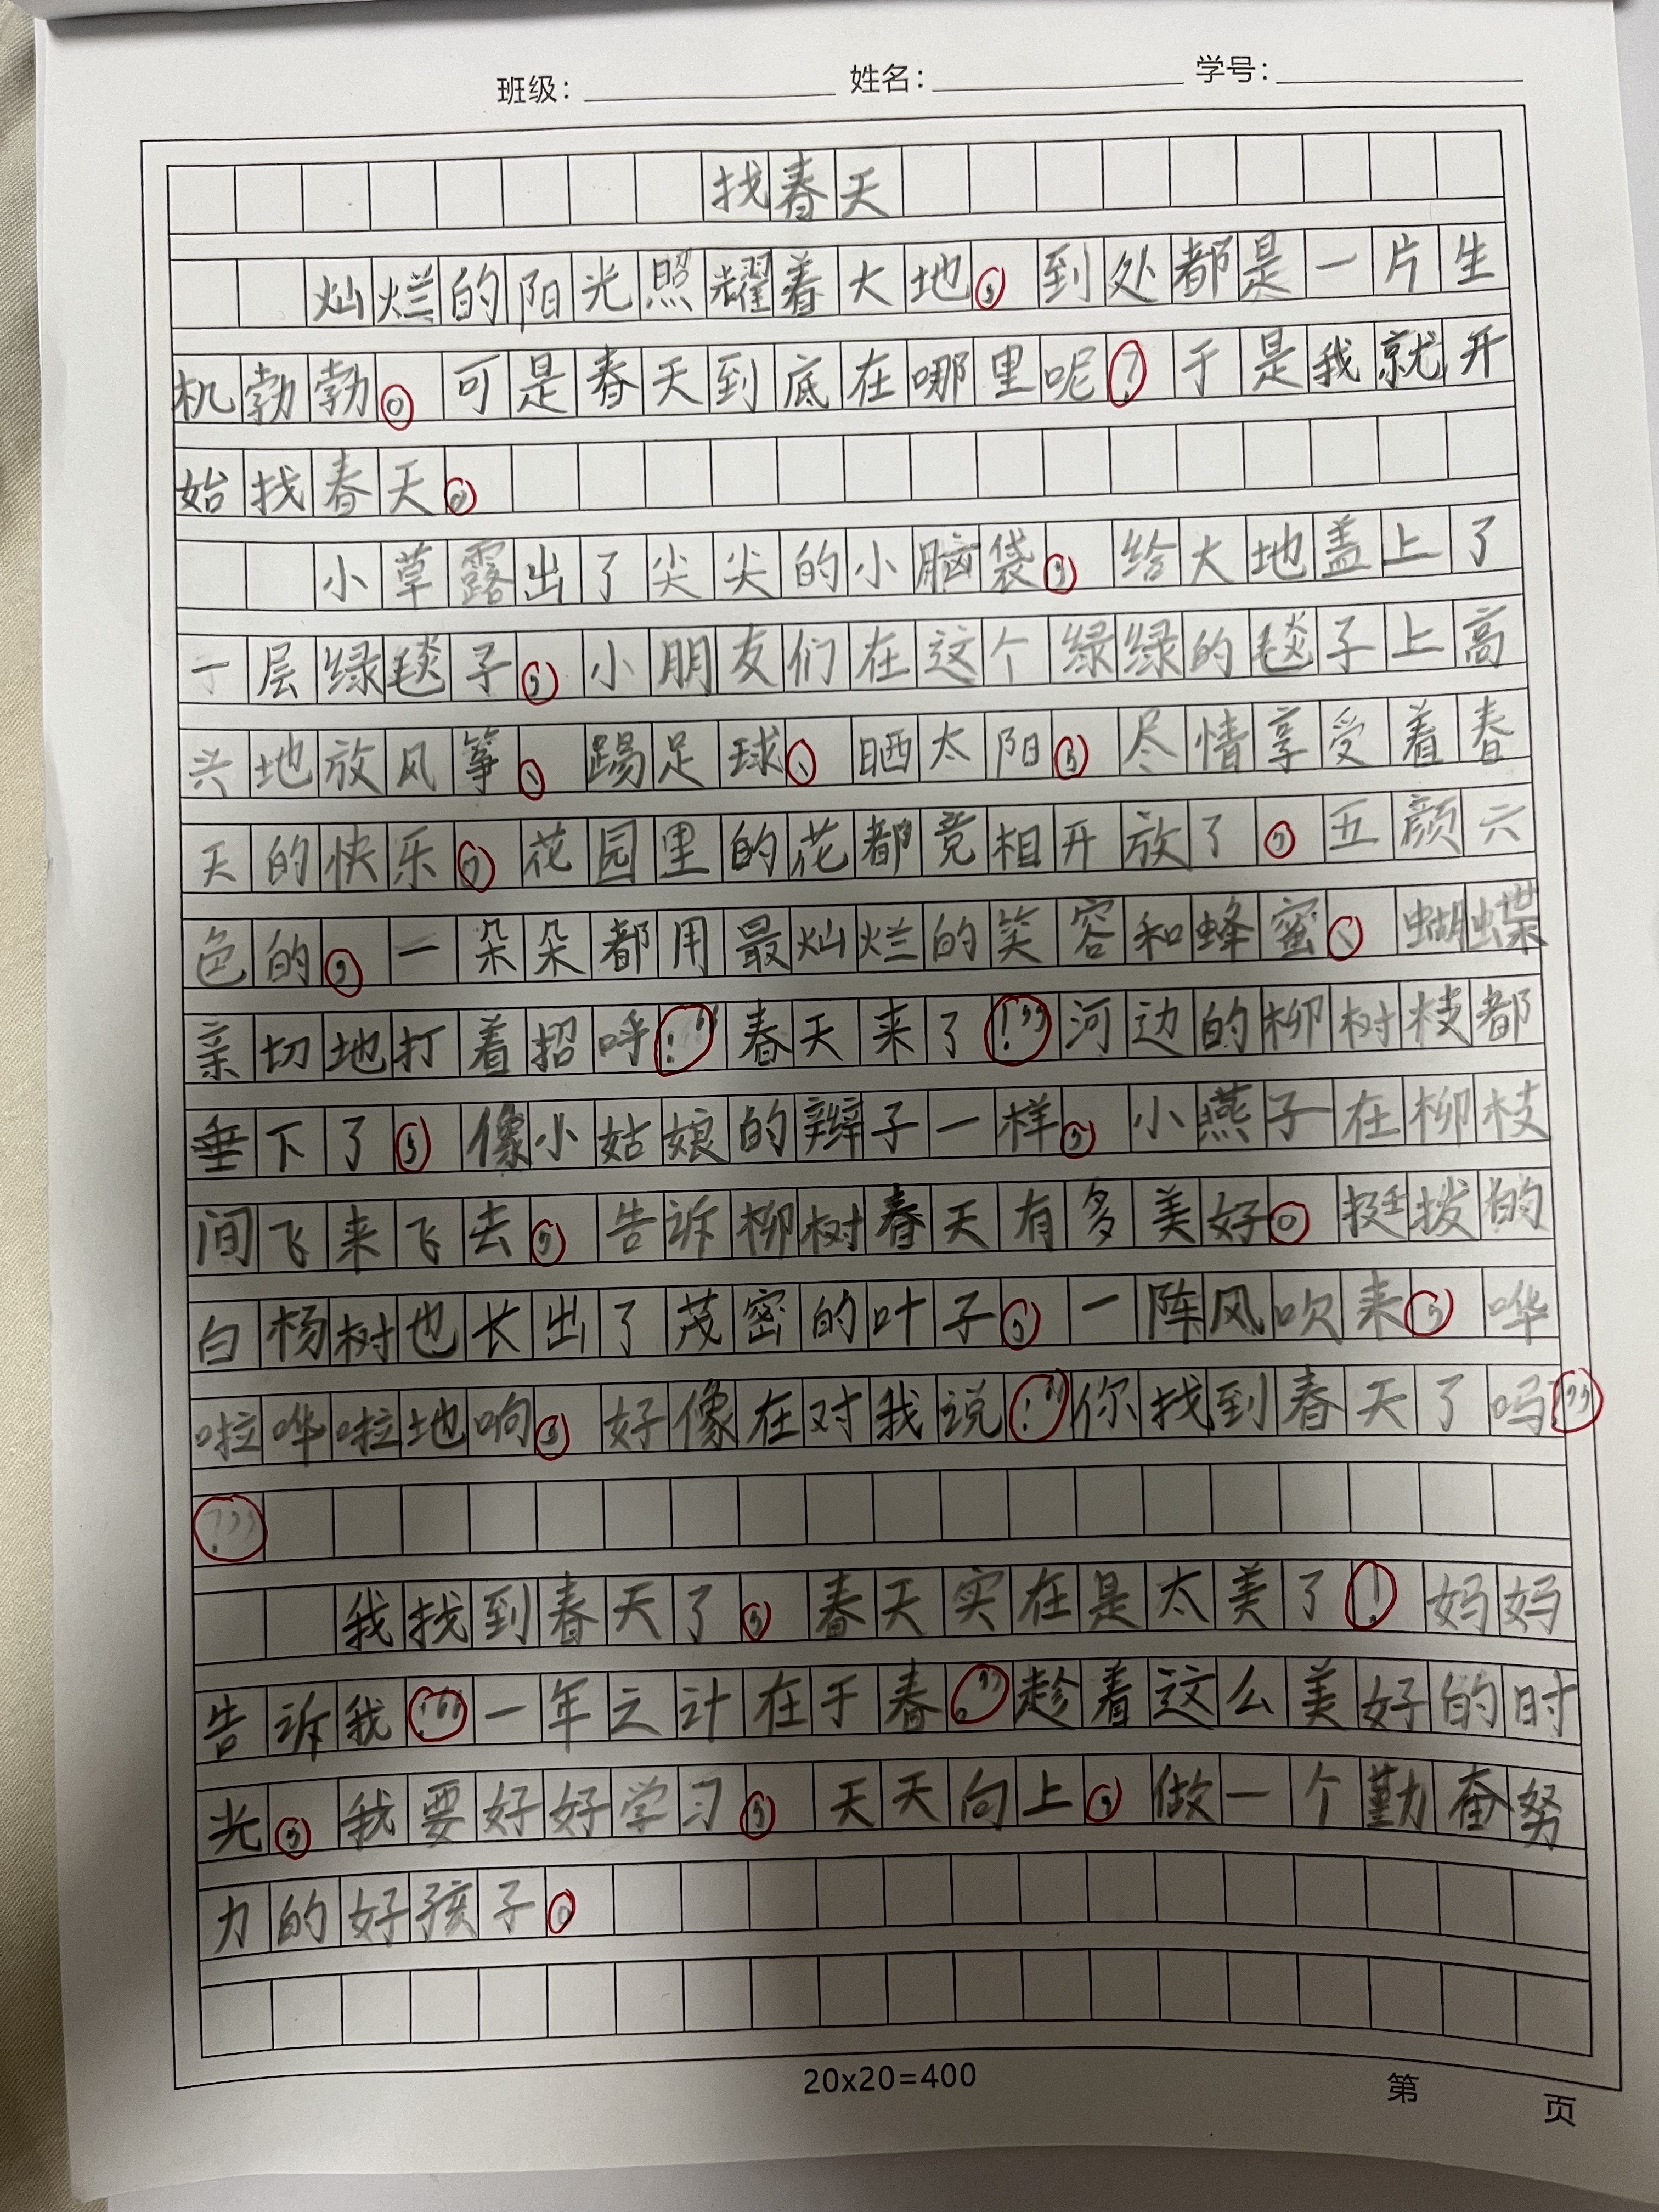 班级： 姓名： 学号：
找春天
灿烂的阳光照耀着大地，到处都是一片生
机勃勃。可是春天到底在哪里呢？于是我就开
始找春天。
小草露出了尖尖的小脑袋，给大地盖上了
一层绿毯子，小朋友们在这个绿绿的毯子上高
兴地放风筝、踢足球、晒太阳，尽情享受着春
天的快乐，花园里的花都竞相开放了，五颜六
色的，一朵朵都用最灿烂的笑容和蜂蜜、蝴蝶
亲切地打着招呼：“春天来了！”河边的柳树枝都
垂下了，像小姑娘的辫子一样，小燕子在柳枝
间飞来飞去，告诉柳树春天有多美好。挺拨的
白杨树也长出了茂密的叶子，一阵风吹来，哗
啦哗啦地响，好像在对我说：“你找到春天了吗？”
？”
我找到春天了，春天实在是太美了！妈妈
告诉我：“一年之计在于春。”趁着这么美好的时
光，我要好好学习，天天向上，做一个勤奋努
力的好孩子。
20x20=400
第 页